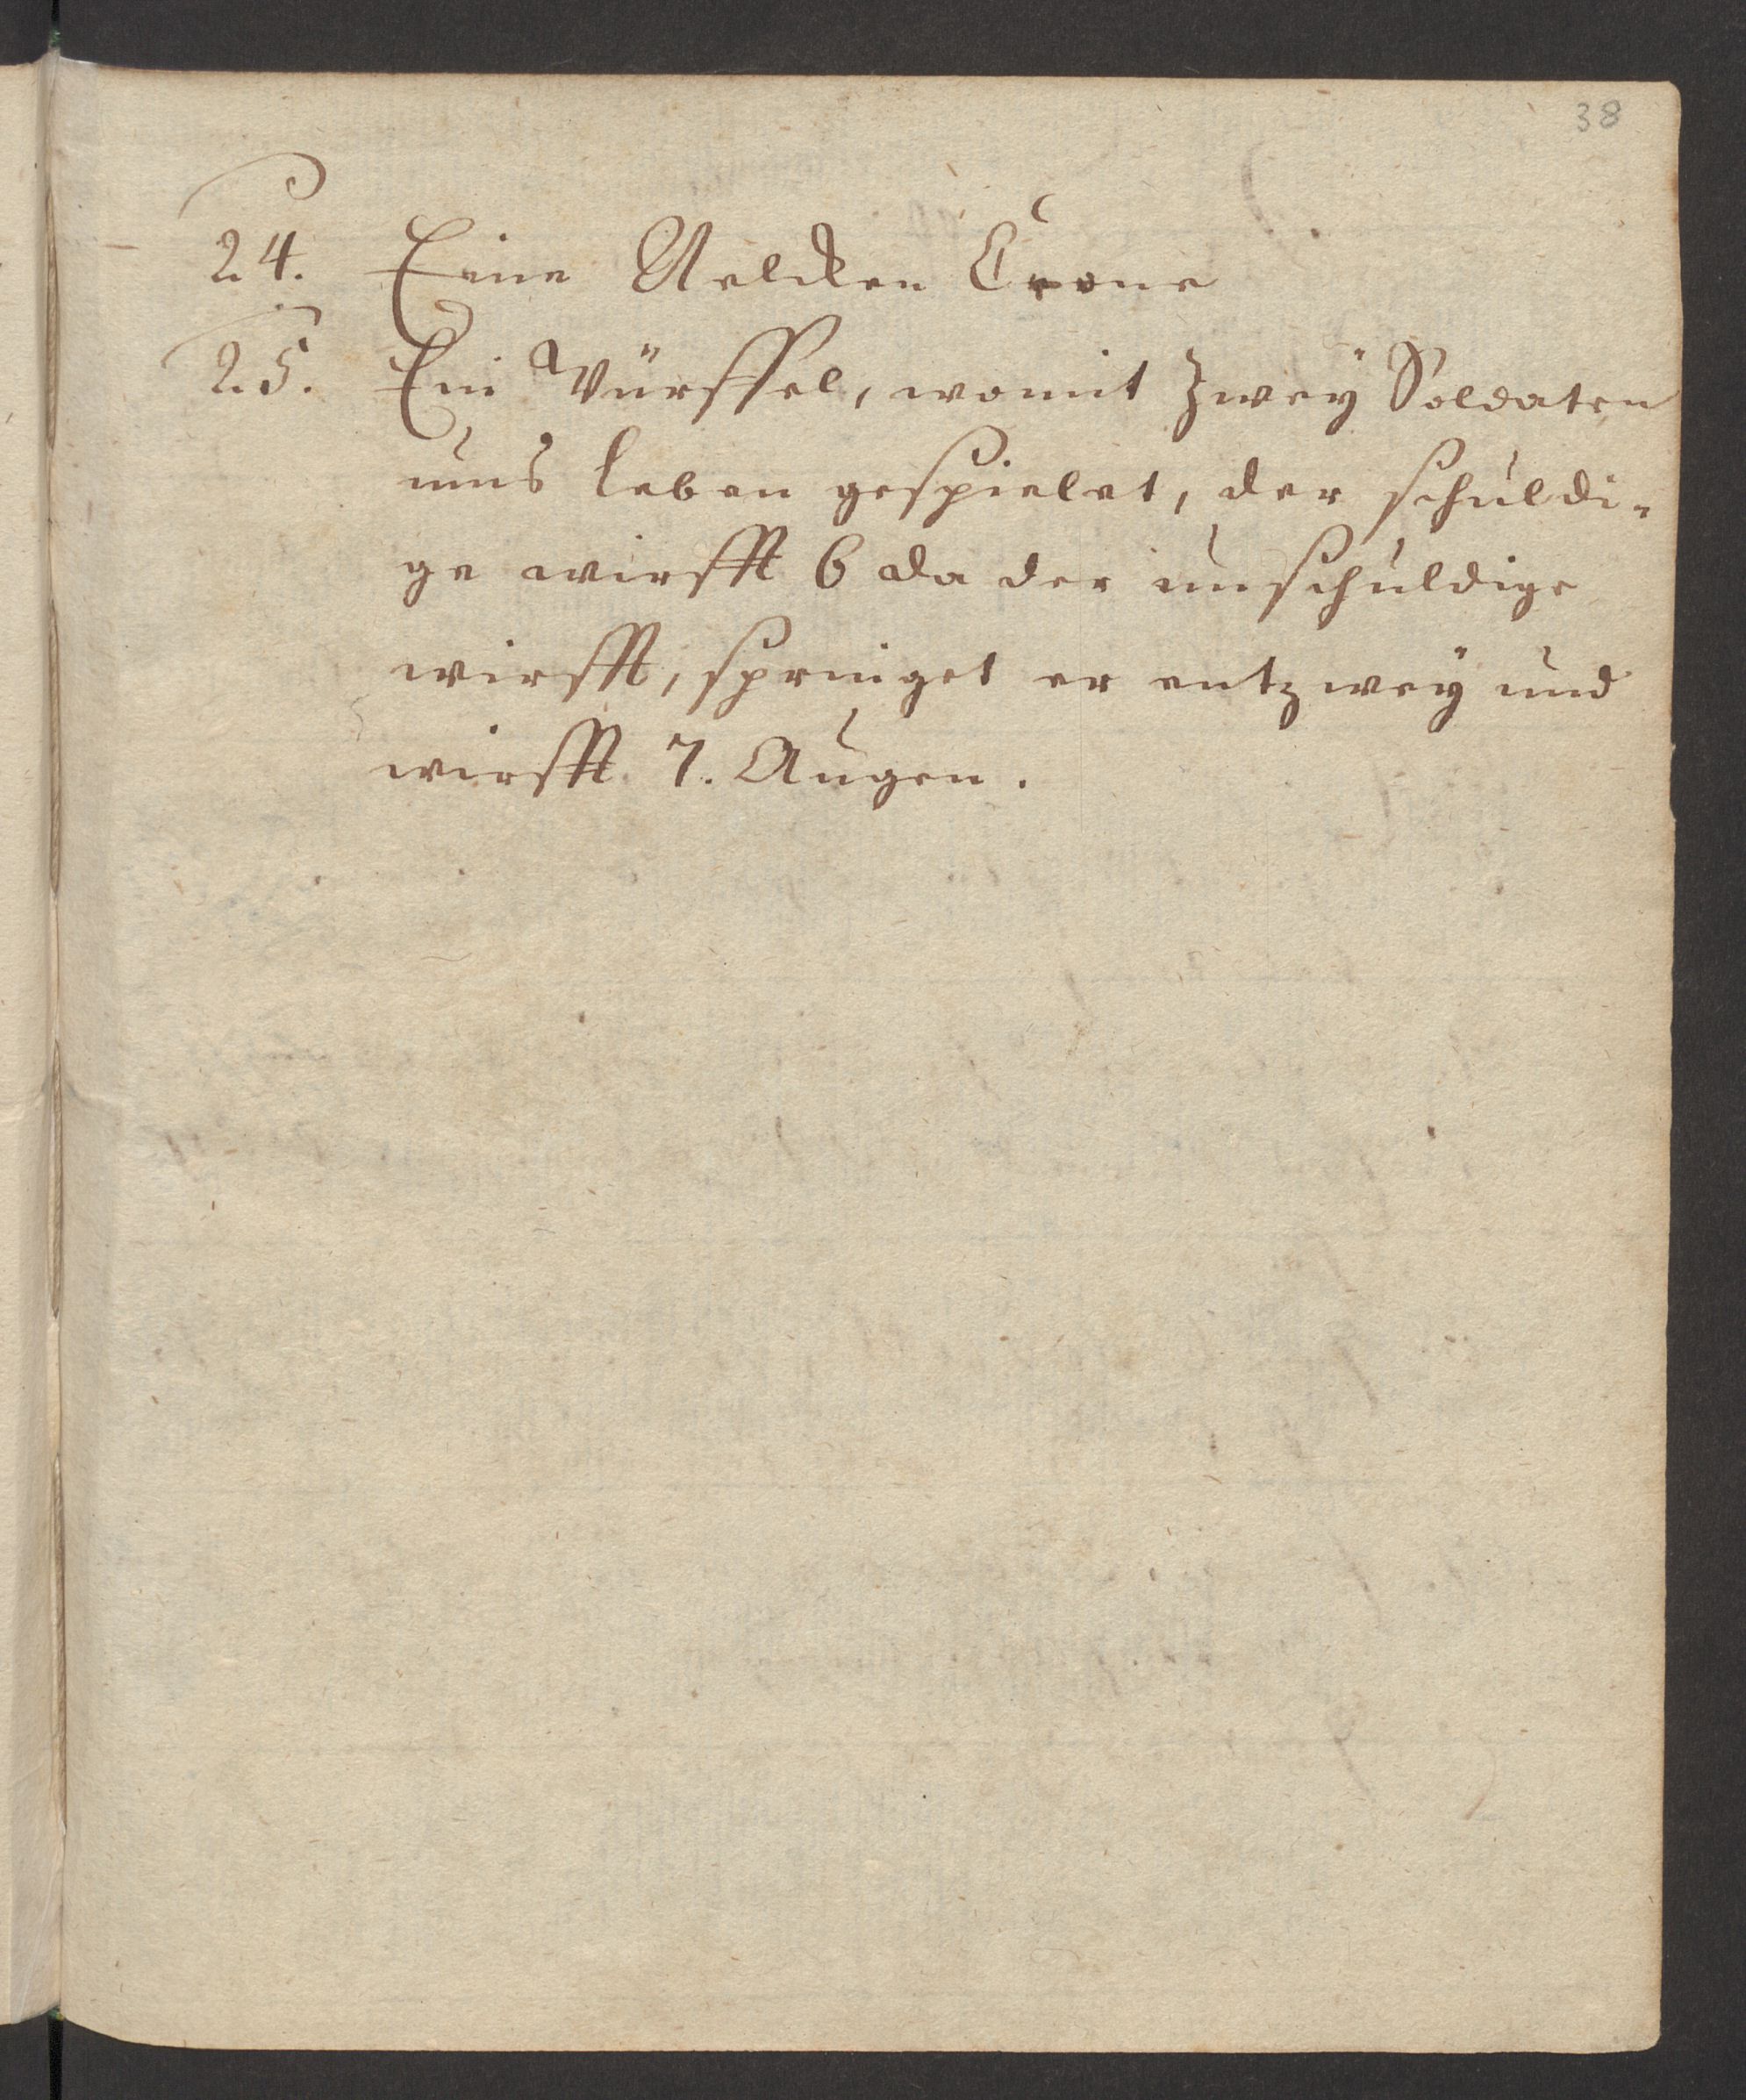 38
24. Eine Nelcken Crone
25. Ein Würffel, womit zwey Soldaten
ums Leben gespielet, der schuldi-
ge wirfft 6 da der unschuldige
wirfft, springet er entzwey und
wirfft 7. Augen.